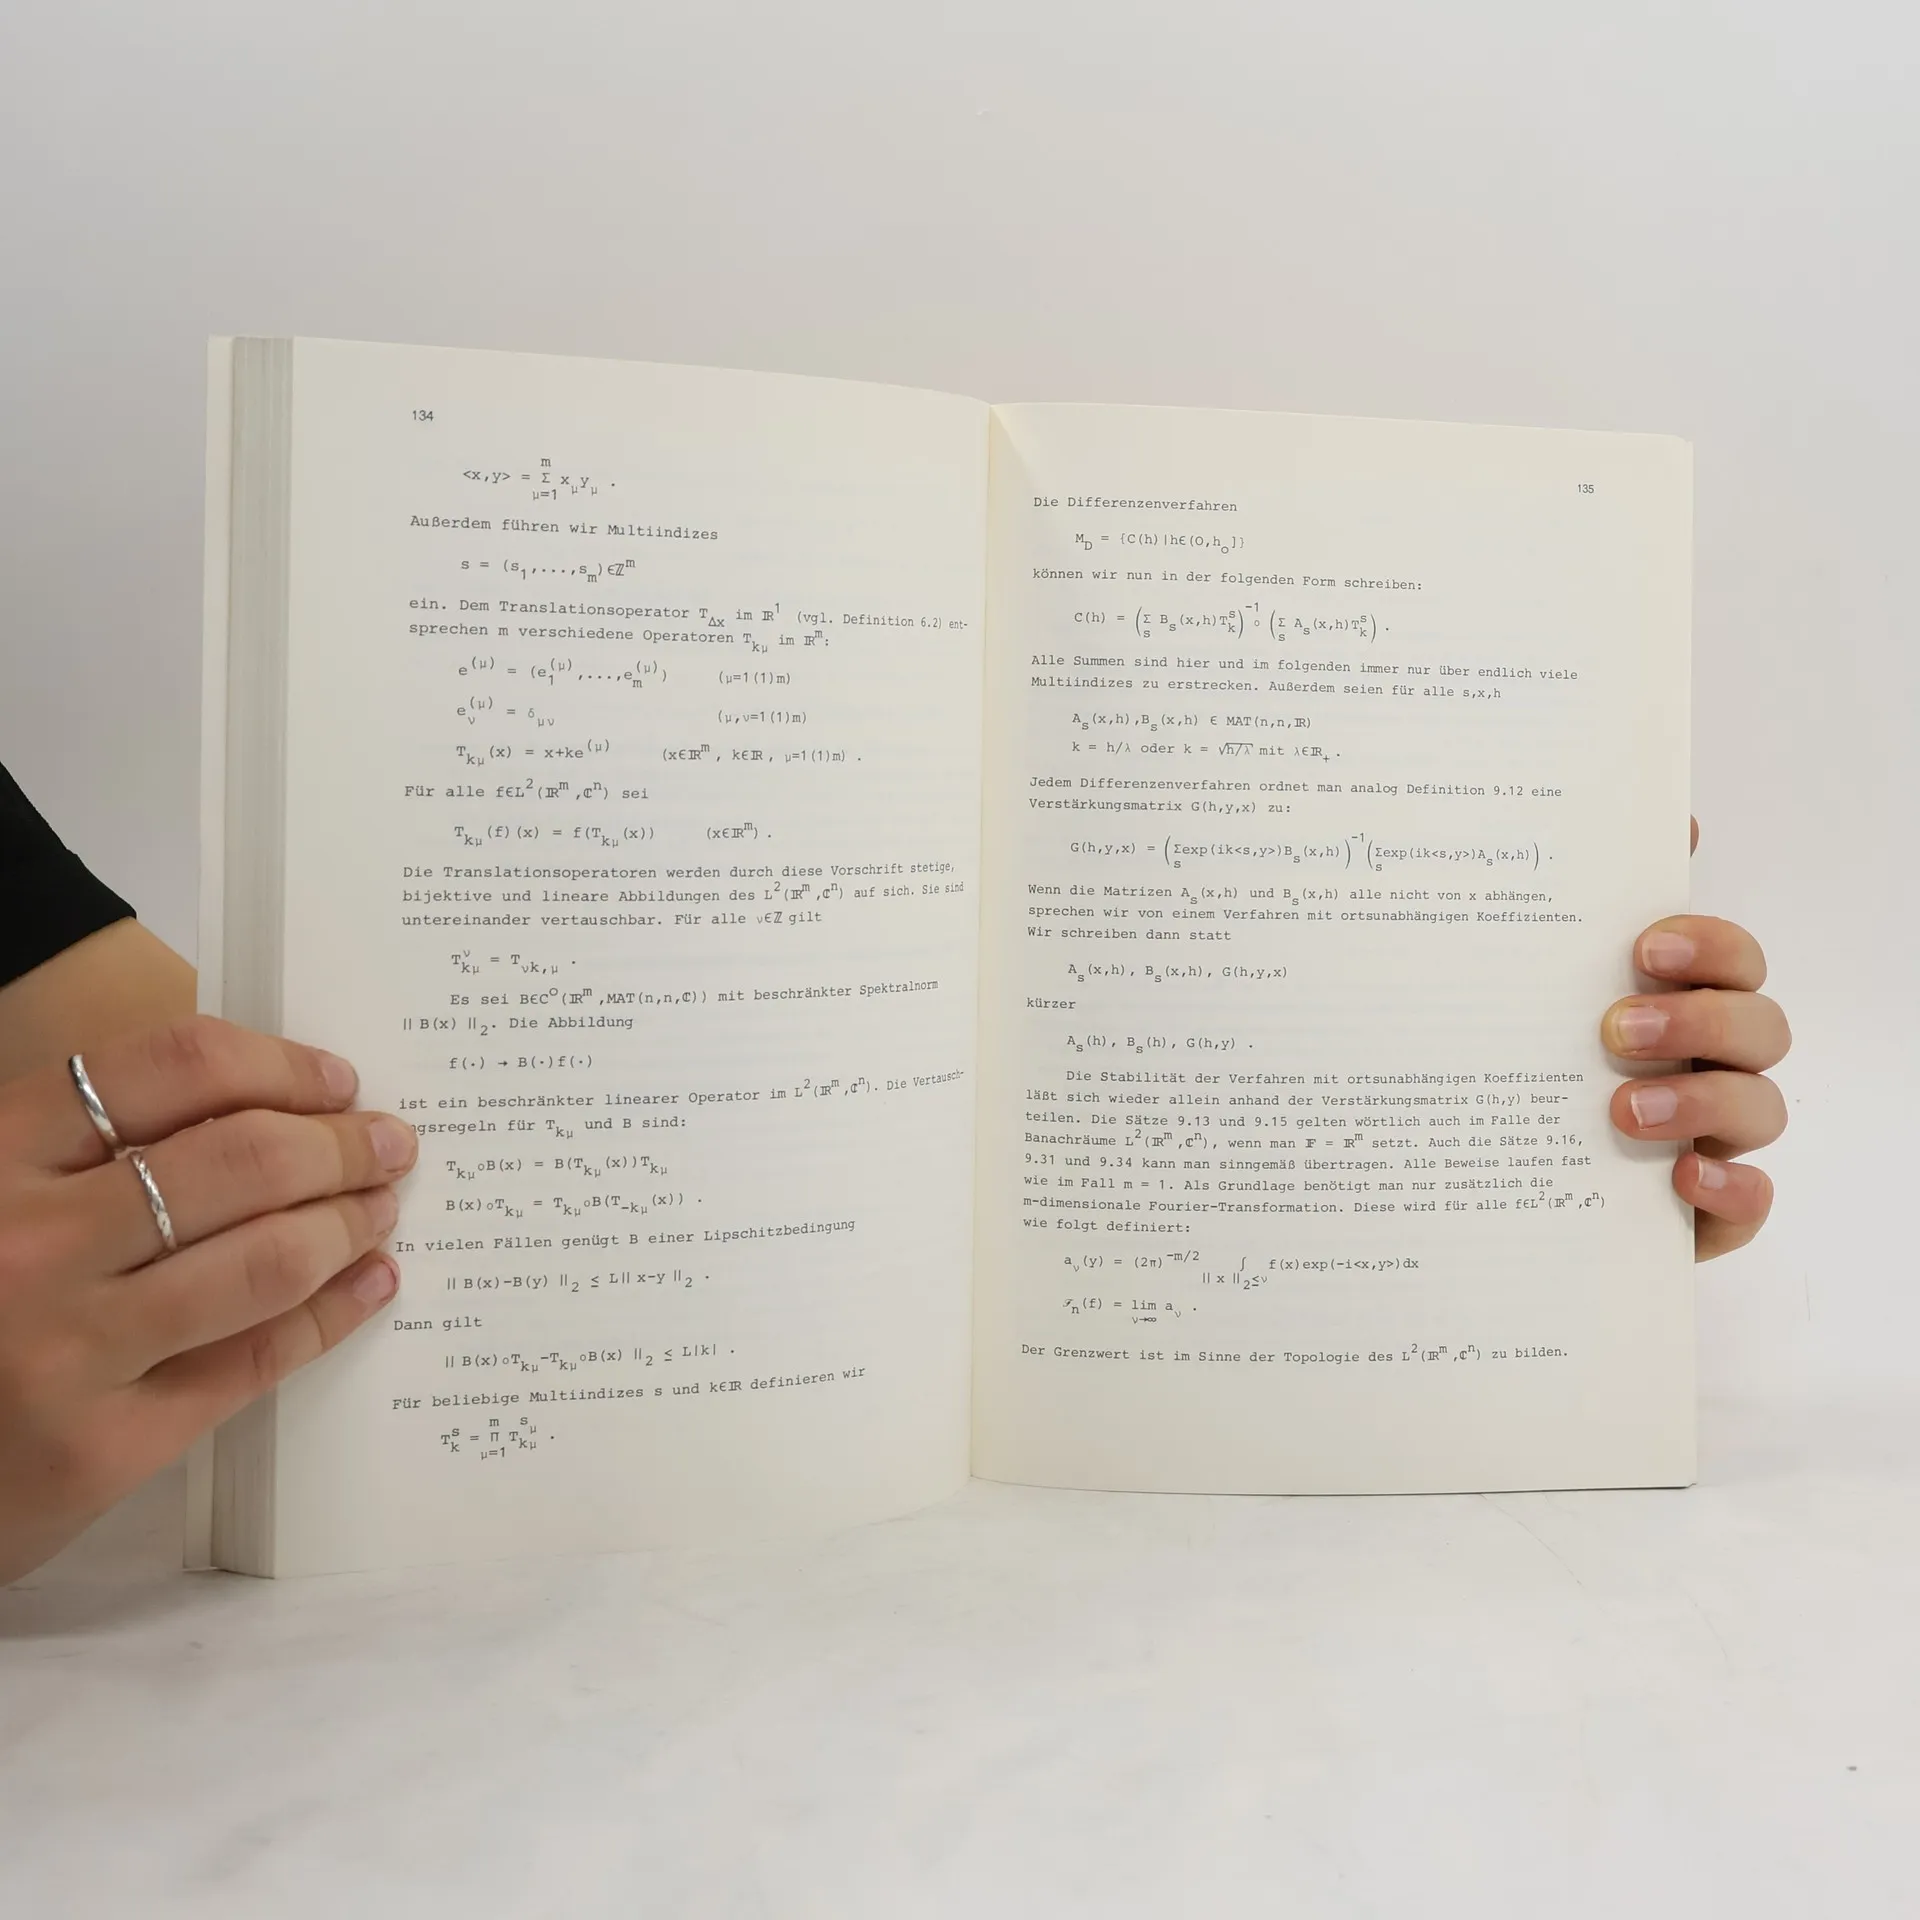 134
<x,y> = Σ_{μ=1}^{m} x_μ y_μ .
Außerdem führen wir Multiindizes
s = (s_1,...,s_m)∈ℤ^m
ein. Dem Translationsoperator T_{Δx} im ℝ^1 (vgl. Definition 6.2) ent-
sprechen m verschiedene Operatoren T_{kμ} im ℝ^m:
e^{(μ)} = (e_1^{(μ)},...,e_m^{(μ)}) (μ=1(1)m)
e_ν^{(μ)} = δ_{μν} (μ,ν=1(1)m)
T_{kμ}(x) = x+ke^{(μ)} (x∈ℝ^m, k∈ℝ, μ=1(1)m) .
Für alle f∈L^2(ℝ^m,ℂ^n) sei
T_{kμ}(f)(x) = f(T_{kμ}(x)) (x∈ℝ^m) .
Die Translationsoperatoren werden durch diese Vorschrift stetige,
bijektive und lineare Abbildungen des L^2(ℝ^m,ℂ^n) auf sich. Sie sind
untereinander vertauschbar. Für alle ν∈ℤ gilt
T_{kμ}^ν = T_{νk,μ} .
Es sei B∈C^0(ℝ^m,MAT(n,n,ℂ)) mit beschränkter Spektralnorm
|| B(x) ||_2. Die Abbildung
f(·) → B(·)f(·)
ist ein beschränkter linearer Operator im L^2(ℝ^m,ℂ^n). Die Vertausch-
ngsregeln für T_{kμ} und B sind:
T_{kμ}∘B(x) = B(T_{kμ}(x))T_{kμ}
B(x)∘T_{kμ} = T_{kμ}∘B(T_{-kμ}(x)) .
In vielen Fällen genügt B einer Lipschitzbedingung
|| B(x)-B(y) ||_2 ≤ L|| x-y ||_2 .
Dann gilt
|| B(x)∘T_{kμ}-T_{kμ}∘B(x) ||_2 ≤ L|k| .
Für beliebige Multiindizes s und k∈ℝ definieren wir
T_k^s = Π_{μ=1}^{m} T_{kμ}^{s_μ} .
135
Die Differenzenverfahren
M_D = {C(h)|h∈(0,h_0]}
können wir nun in der folgenden Form schreiben:
C(h) = (Σ_s B_s(x,h)T_k^s)^{-1} ∘ (Σ_s A_s(x,h)T_k^s) .
Alle Summen sind hier und im folgenden immer nur über endlich viele
Multiindizes zu erstrecken. Außerdem seien für alle s,x,h
A_s(x,h),B_s(x,h) ∈ MAT(n,n,ℝ)
k = h/λ oder k = √(h/λ) mit λ∈ℝ_+ .
Jedem Differenzenverfahren ordnet man analog Definition 9.12 eine
Verstärkungsmatrix G(h,y,x) zu:
G(h,y,x) = (Σ_s exp(ik<s,y>)B_s(x,h))^{-1}(Σ_s exp(ik<s,y>)A_s(x,h)) .
Wenn die Matrizen A_s(x,h) und B_s(x,h) alle nicht von x abhängen,
sprechen wir von einem Verfahren mit ortsunabhängigen Koeffizienten.
Wir schreiben dann statt
A_s(x,h), B_s(x,h), G(h,y,x)
kürzer
A_s(h), B_s(h), G(h,y) .
Die Stabilität der Verfahren mit ortsunabhängigen Koeffizienten
läßt sich wieder allein anhand der Verstärkungsmatrix G(h,y) beur-
teilen. Die Sätze 9.13 und 9.15 gelten wörtlich auch im Falle der
Banachräume L^2(ℝ^m,ℂ^n), wenn man 𝔽 = ℝ^m setzt. Auch die Sätze 9.16,
9.31 und 9.34 kann man sinngemäß übertragen. Alle Beweise laufen fast
wie im Fall m = 1. Als Grundlage benötigt man nur zusätzlich die
m-dimensionale Fourier-Transformation. Diese wird für alle f∈L^2(ℝ^m,ℂ^n)
wie folgt definiert:
a_ν(y) = (2π)^{-m/2} ∫_{|| x ||_2≤ν} f(x)exp(-i<x,y>)dx
ℱ_n(f) = lim_{ν→∞} a_ν .
Der Grenzwert ist im Sinne der Topologie des L^2(ℝ^m,ℂ^n) zu bilden.